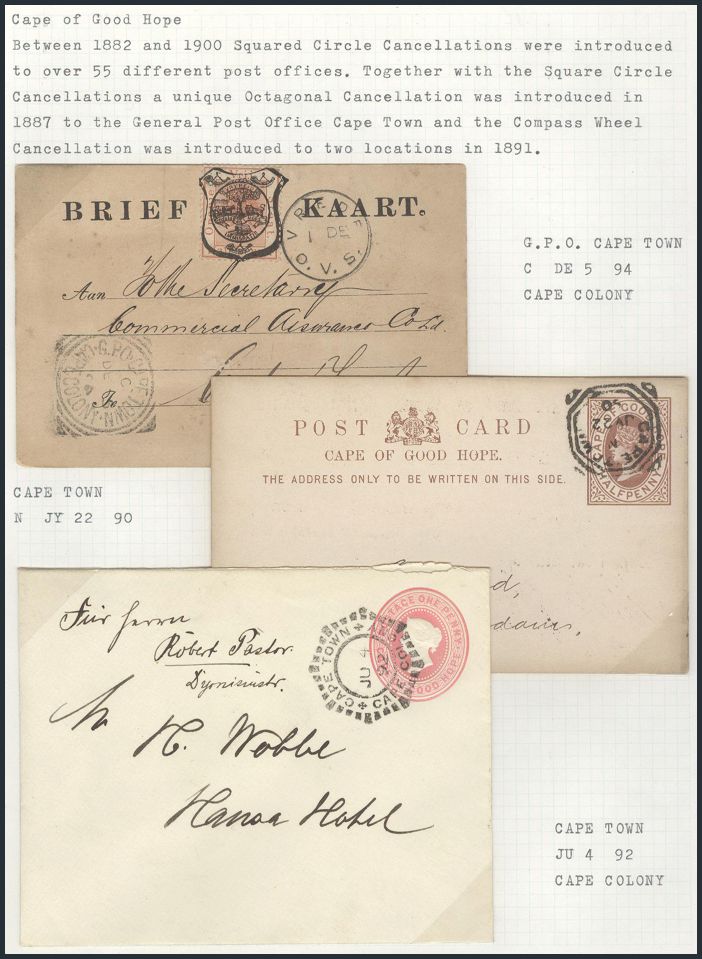 Cape of Good Hope
Between 1882 and 1900 Squared Circle Cancellations were introduced
to over 55 different post offices. Together with the Square Circle
Cancellations a unique Octagonal Cancellation was introduced in
1887 to the General Post Office Cape Town and the Compass Wheel
Cancellation was introduced to two locations in 1891.
BRIEF KAART.
1 DE
O.V.S.
Aan To the Secretary
Commercial Assurance Co Ld.
G.P.O. CAPE TOWN
C DE 5 94
CAPE COLONY
G.P.O. CAPE TOWN
C
DE
POST CARD
CAPE OF GOOD HOPE.
THE ADDRESS ONLY TO BE WRITTEN ON THIS SIDE.
HALFPENNY
CAPE
JY 22
90
CAPE TOWN
N JY 22 90
POSTAGE ONE PENNY
GOOD HOPE
CAPE TOWN
JU 4
92
Für Herrn
Robert Pastor
Mr H. Wobbe
Hansa Hotel
CAPE TOWN
JU 4 92
CAPE COLONY